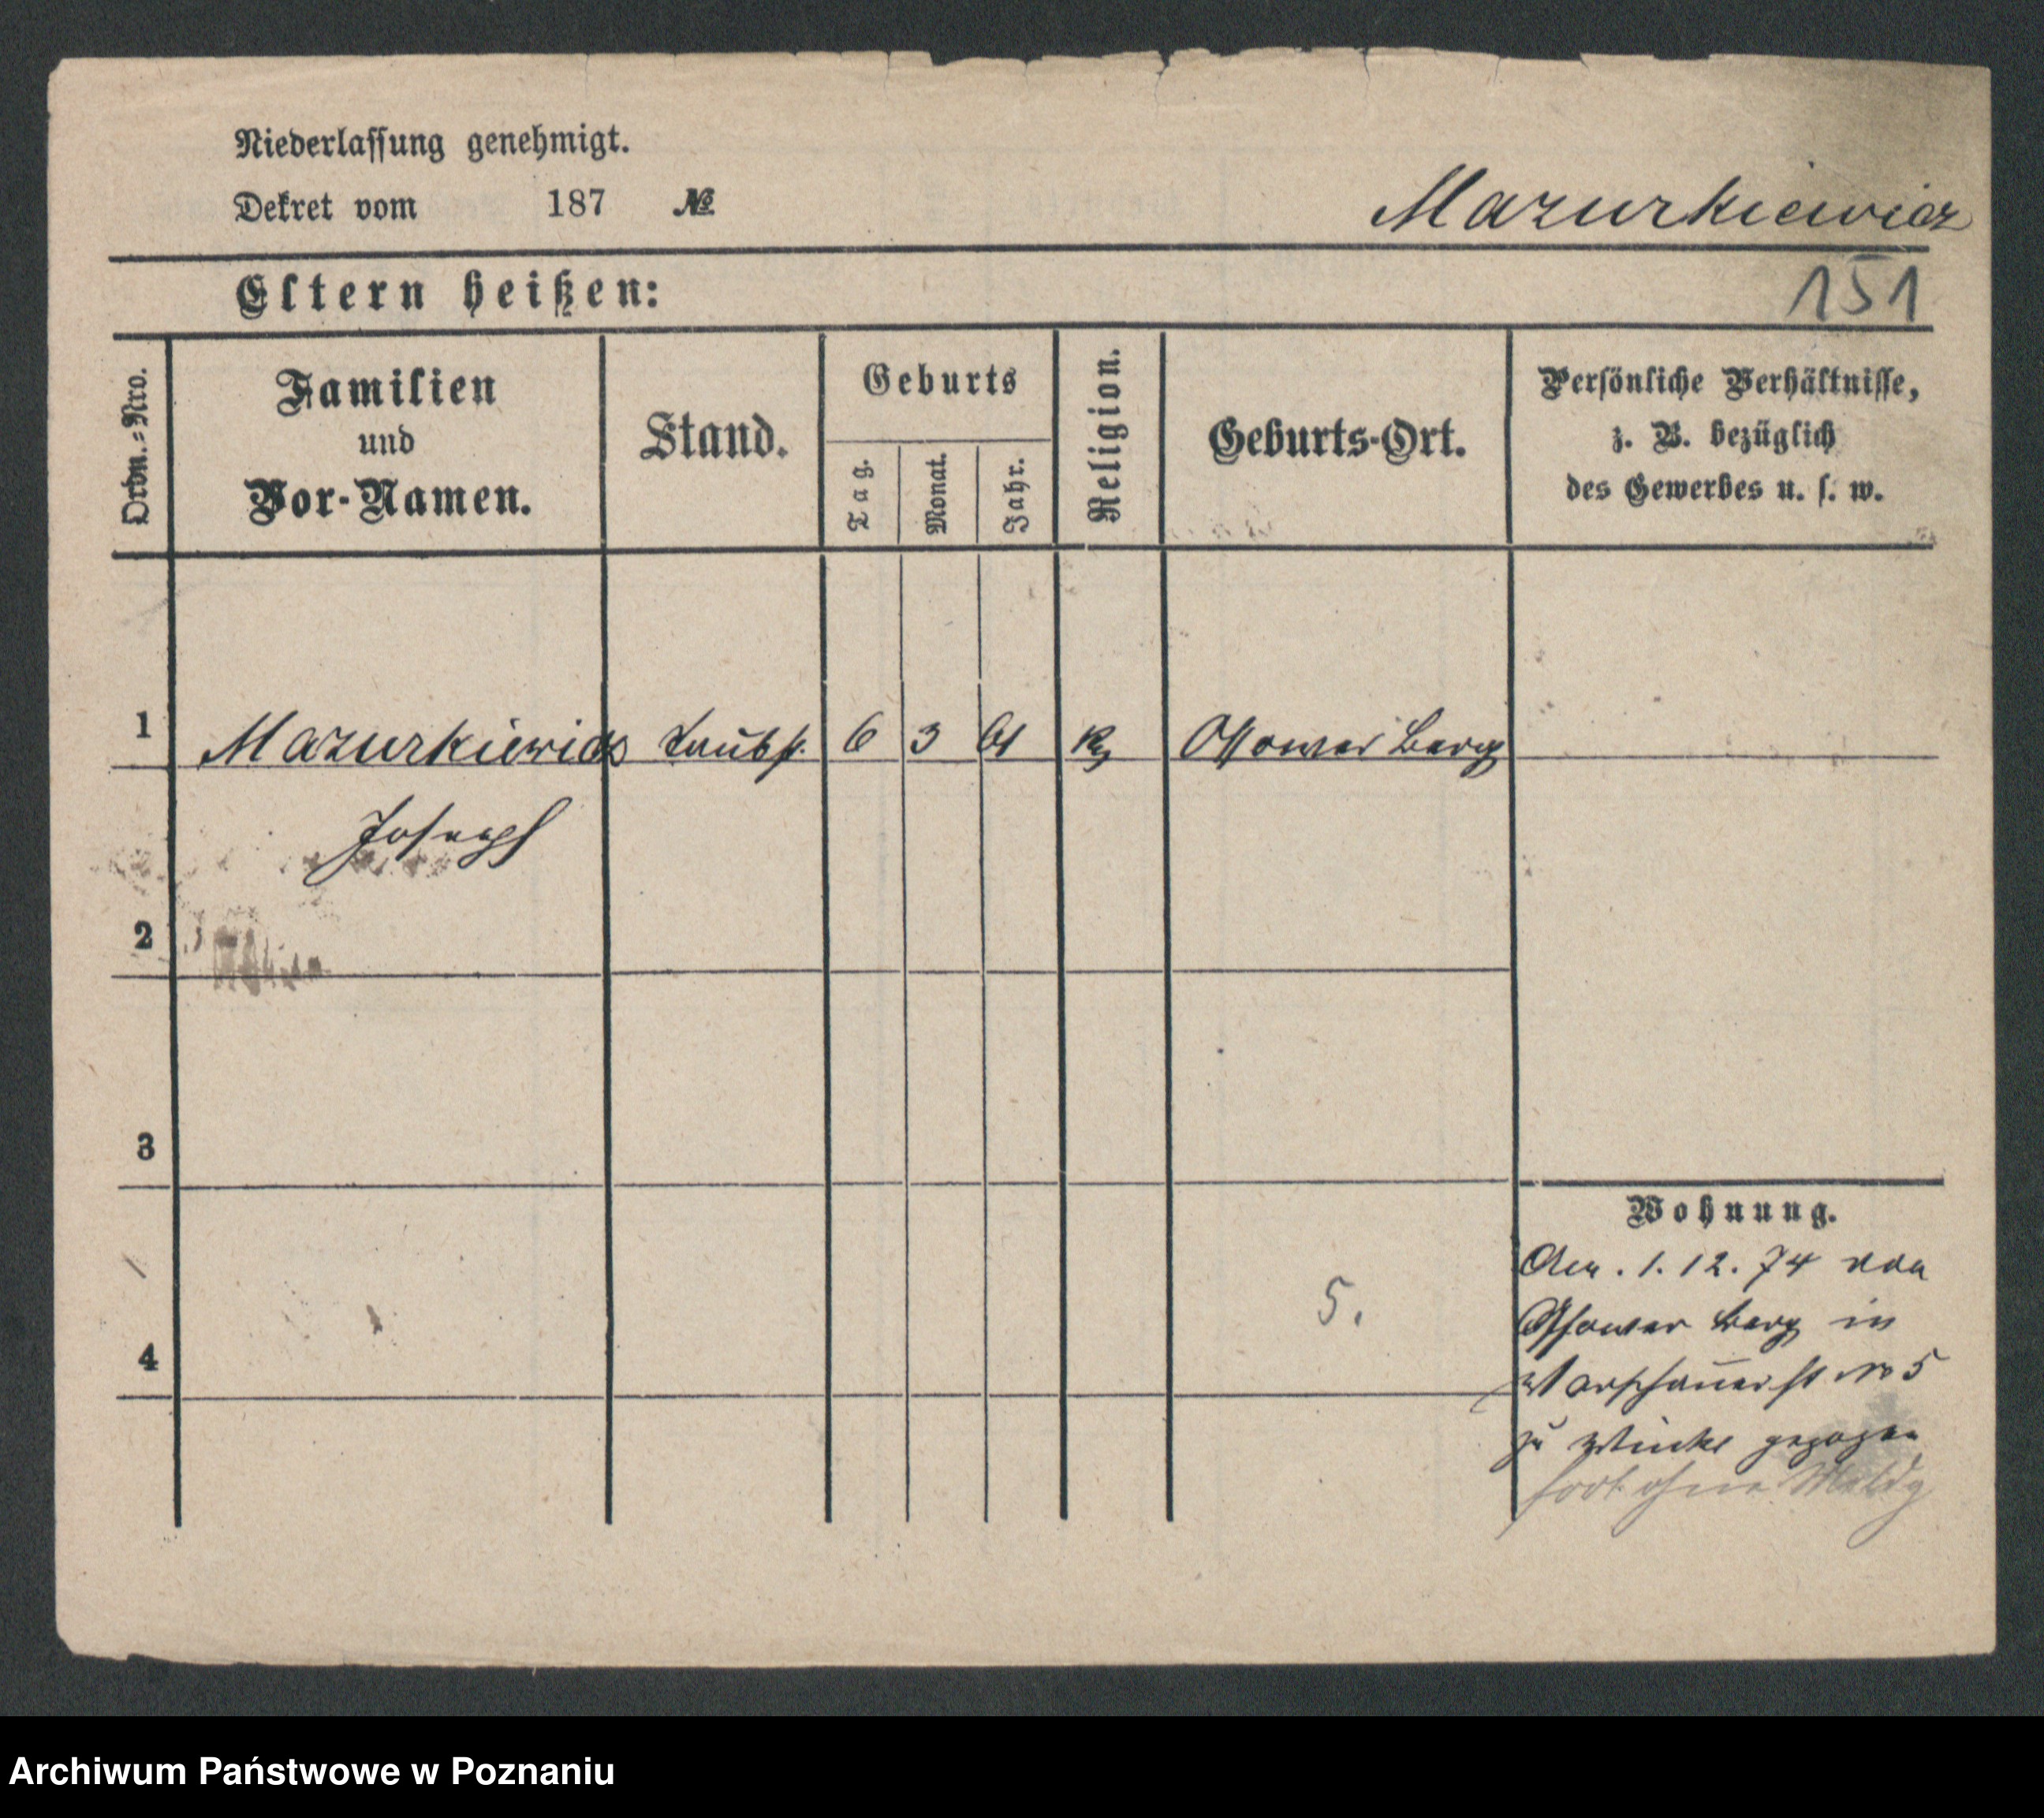 Niederlassung genehmigt.
Dekret vom 187 №
Mazurkiewicz
Eltern heißen:
151
Ordn.=Nro.
Familien
und
Vor-Namen.
Stand.
Geburts
Tag.
Monat.
Jahr.
Religion.
Geburts-Ort.
Persönliche Verhältnisse,
z. B. bezüglich
des Gewerbes u. s. w.
1 Mazurkiewicz Laufb. 6 3 61 K Ossower Berg
Joseph
2
3
Wohnung.
1. 12. 74 von
Ossower Berg in
5.
4
Warschauerst No 5
zu Wincke gezogen
fort ohne Meldg
Archiwum Państwowe w Poznaniu